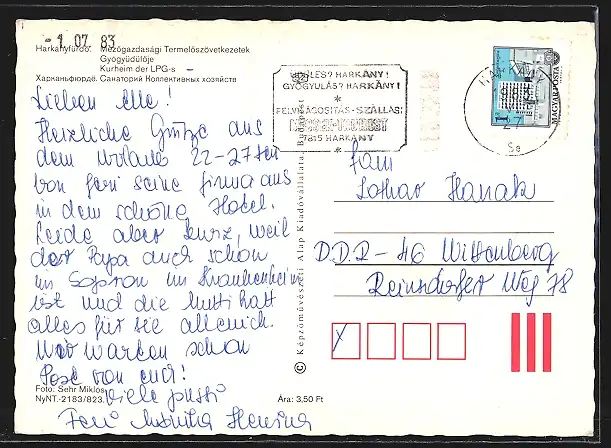 -1 07 83
Harkányfürdő. Mezőgazdasági Termelőszövetkezetek
Gyógyüdülője
Kurheim der LPG-s
Харканьфюрдё. Санаторий Коллективных хозяйств
Lieben Alle!
Herzliche Grütze aus
dem Urlaub 22-27ten
von feri seine firma aus
in dem schöne Hotel.
Leide aber kurz, weil
der Papa auch schon
im Sopron im Krankenheim
ist und die Mutti hatt
alles für sie allenich.
Wir warten schon
Post von euch!
Viele pussi
Feri Henina
Foto: Sehr Miklós
NyNT.-2183/823.
Ára: 3,50 Ft
© Képzőművészeti Alap Kiadóvállalata, Budapest
ÜDÜLÉS? HARKÁNY!
GYÓGYULÁS? HARKÁNY!
*
FELVILÁGOSÍTÁS-SZÁLLÁS:
7815 HARKÁNY
*
MAGYAR POSTA
1
HARKÁNY
27
Fam
Lothar Hanak
D.D.R-46 Wittenberg
Reinsdorfer Weg 78